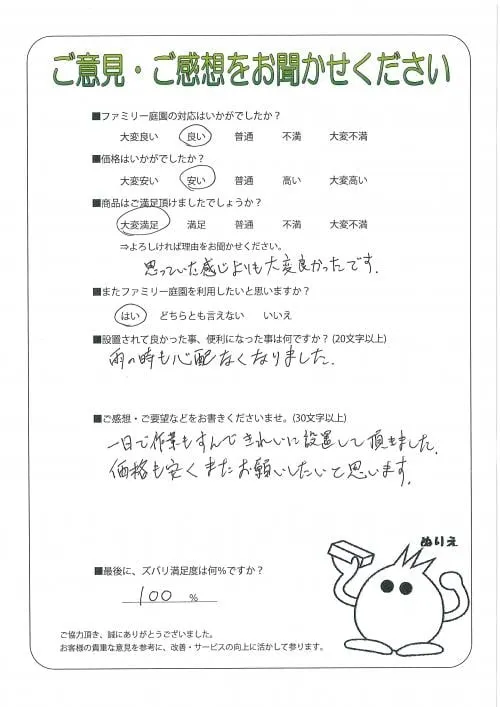 ご意見・ご感想をお聞かせください
■ファミリー庭園の対応はいかがでしたか？
大変良い 良い 普通 不満 大変不満
■価格はいかがでしたか？
大変安い 安い 普通 高い 大変高い
■商品はご満足頂けましたでしょうか？
大変満足 満足 普通 不満 大変不満
⇒よろしければ理由をお聞かせください。
思っていた感じよりも大変良かったです.
■またファミリー庭園を利用したいと思いますか？
はい どちらとも言えない いいえ
■設置されて良かった事、便利になった事は何ですか？(20文字以上)
雨の時も心配なくなりました.
■ご感想・ご要望などをお書きくださいませ。(30文字以上)
一日で作業もすんできれいに設置して頂きました.
価格も安くまたお願いしたいと思います.
ぬりえ
■最後に、ズバリ満足度は何％ですか？
100 %
ご協力頂き、誠にありがとうございました。
お客様の貴重な意見を参考に、改善・サービスの向上に活かして参ります。